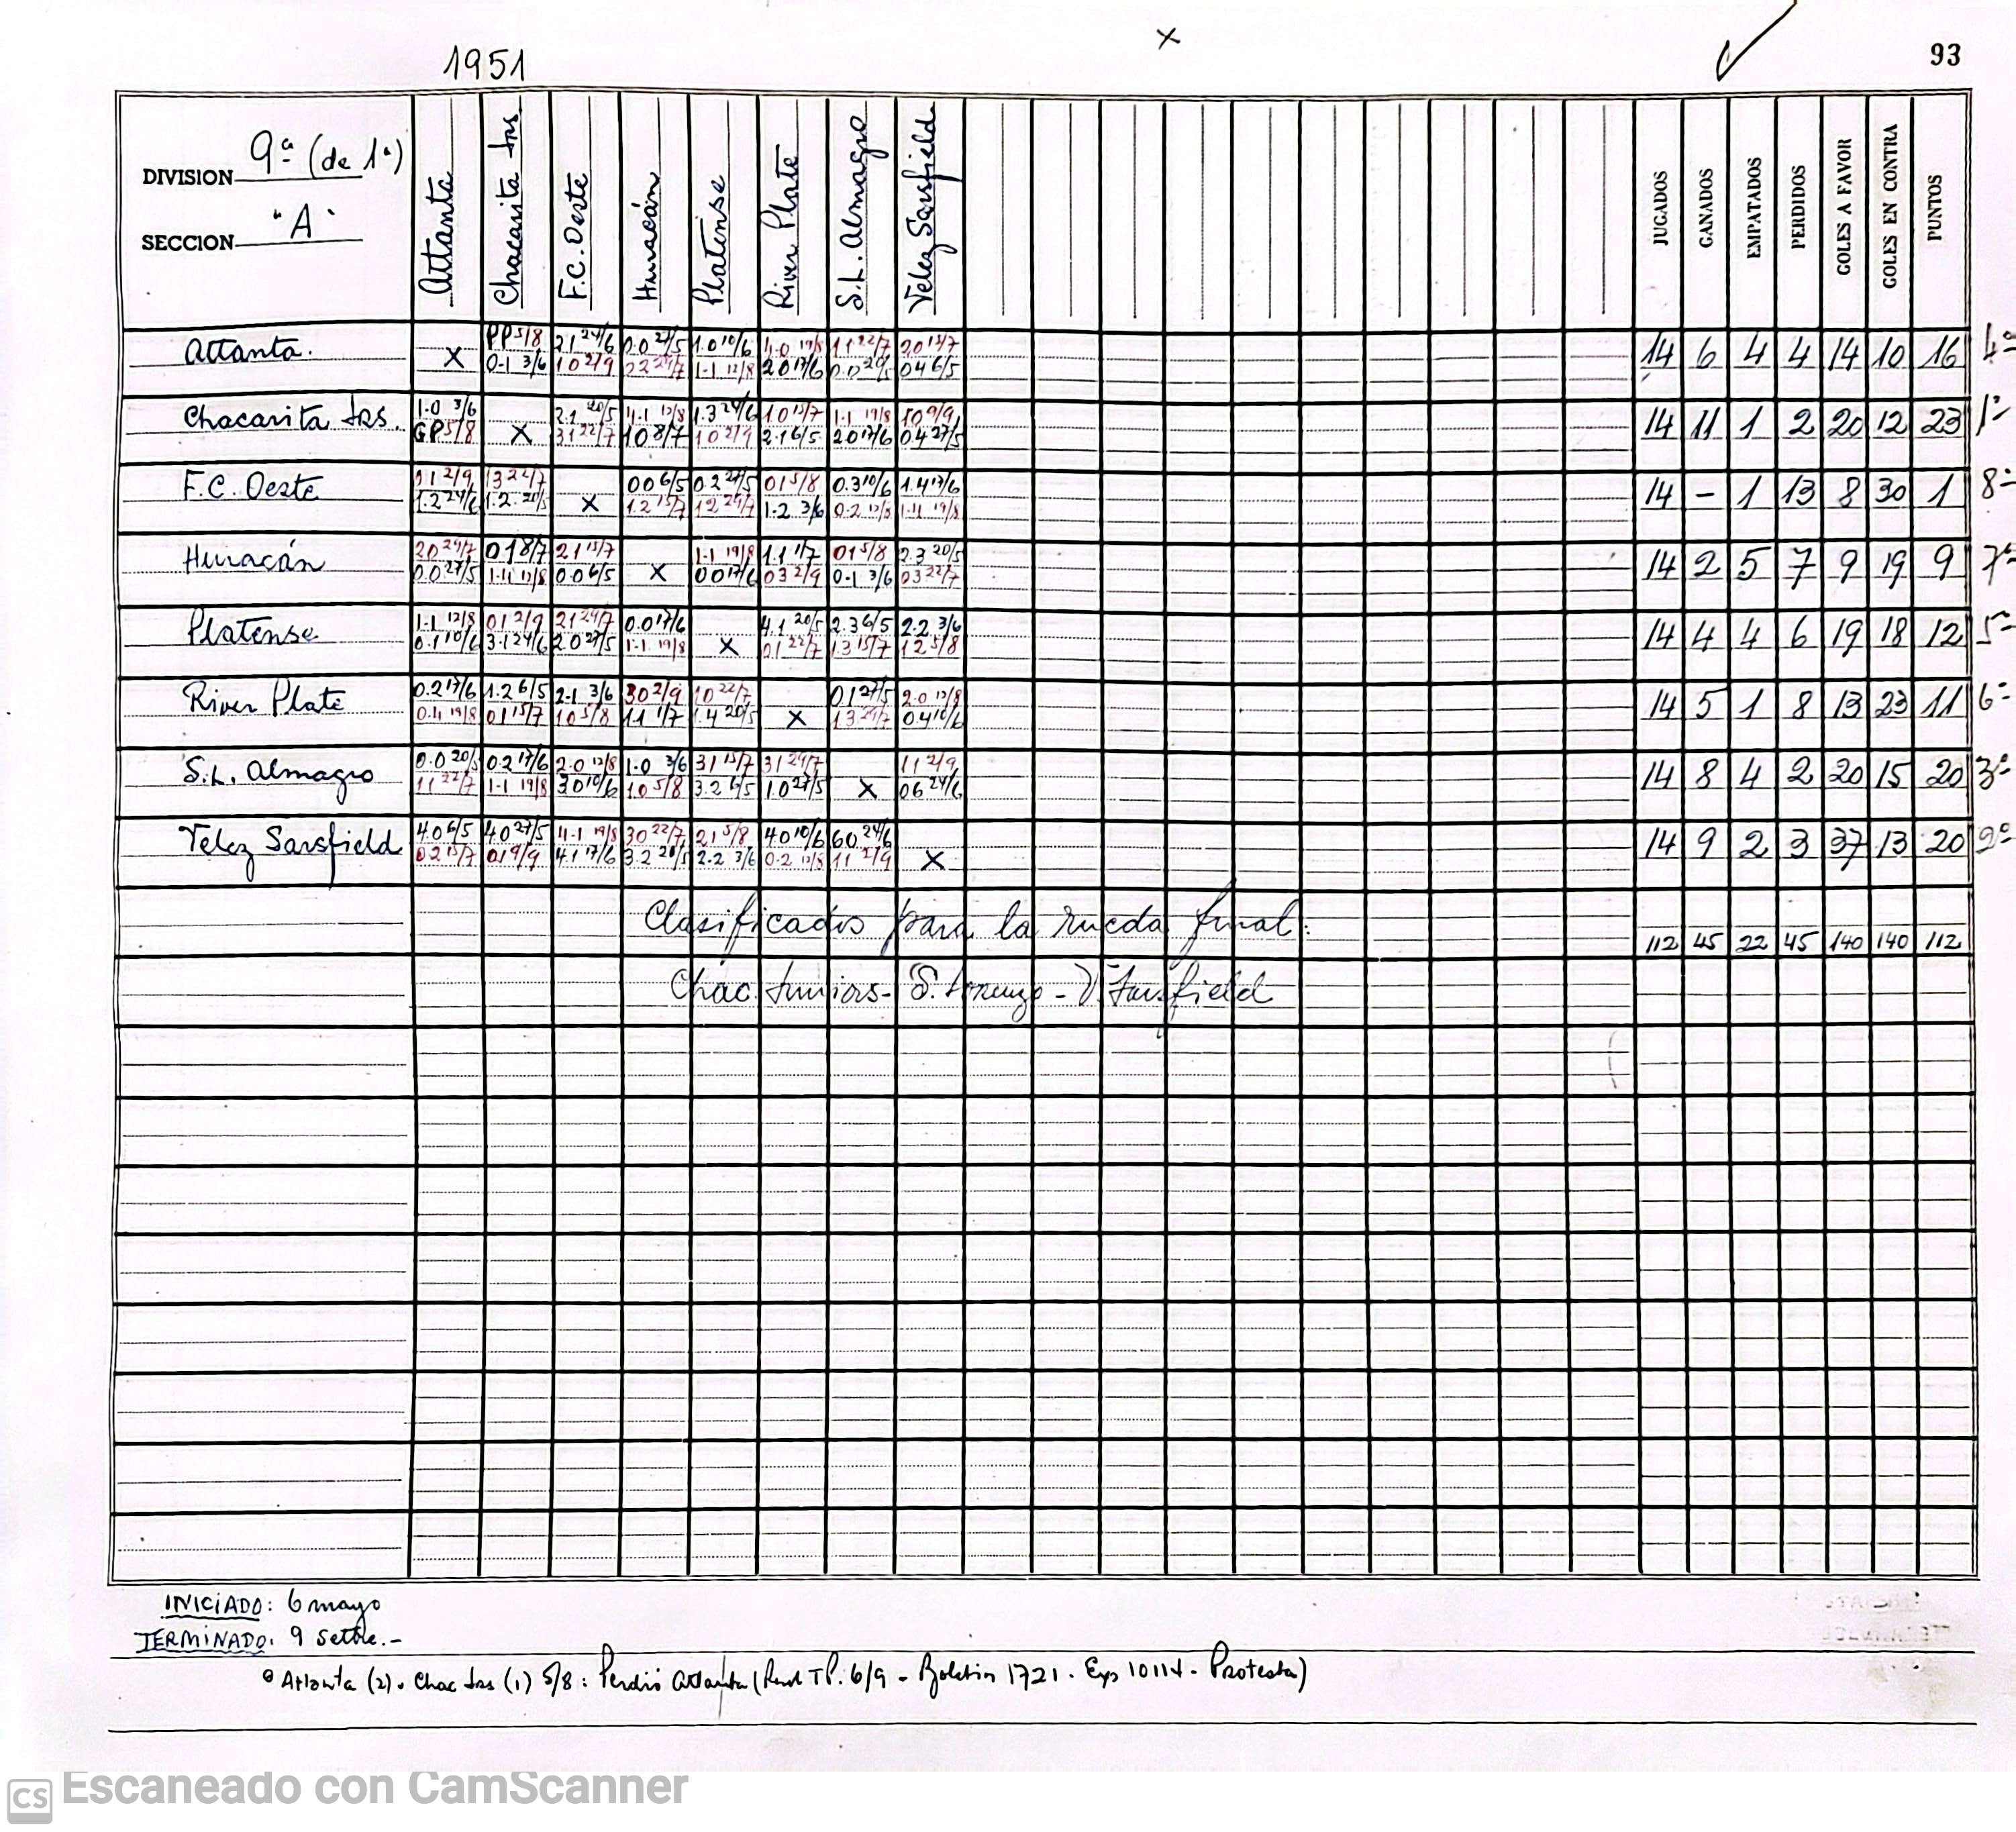 1951
×
93
DIVISION 9ª (de 1ª)
SECCION "A"
Atlanta
Chacarita Jrs
F.C. Oeste
Huracán
Platense
River Plate
S.L. Almagro
Velez Sarsfield
JUGADOS
GANADOS
EMPATADOS
PERDIDOS
GOLES A FAVOR
GOLES EN CONTRA
PUNTOS
Atlanta. PP 5/8 2 1 24/6 0.0 27/5 1.0 10/6 4.0 19/8 1 1 22/7 2 0 15/7
× 0-1 3/6 1 0 2/9 2 2 29/7 1-1 12/8 2 0 17/6 0.0 20/5 0 4 6/5 14 6 4 4 14 10 16 4º
Chacarita Jrs. 1.0 3/6 2.1 20/5 4-1 12/8 1.3 24/6 1 0 15/7 1-1 19/8 1 0 9/9
GP 5/8 × 3 1 22/7 1 0 8/7 1 0 2/9 2.1 6/5 2 0 17/6 0.4 27/5 14 11 1 2 20 12 23 1º
F.C. Oeste 0 1 2/9 1 3 22/7 0 0 6/5 0.2 27/5 0 1 5/8 0.3 10/6 1.4 17/6
1.2 24/6 1.2 20/5 × 1.2 15/7 1 2 29/7 1-2 3/6 0-2 12/8 1-4 19/8 14 – 1 13 8 30 1 8º
Huracán 2 2 29/7 0 1 8/7 2 1 15/7 1-1 19/8 1.1 1/7 0 1 5/8 2.3 20/5
0.0 27/5 1-4 12/8 0.0 6/5 × 0 0 17/6 0 3 2/9 0-1 3/6 0 3 22/7 14 2 5 7 9 19 9 7º
Platense 1-1 12/8 0 1 2/9 2 1 29/7 0.0 17/6 4.1 20/5 2.3 6/5 2.2 3/6
0.1 10/6 3.1 24/6 2.0 27/5 1-1 19/8 × 0 1 22/7 1.3 15/7 1 2 5/8 14 4 4 6 19 18 12 5º
River Plate 0.2 17/6 1.2 6/5 2-1 3/6 3 0 2/9 1 0 22/7 0 1 27/5 2-0 12/8
0-4 19/8 0 1 15/7 1 0 5/8 1 1 1/7 1.4 20/5 × 1 3 29/7 0.4 10/6 14 5 1 8 13 23 11 6º
S.L. Almagro 0.0 20/5 0.2 17/6 2-0 12/8 1-0 3/6 3 1 15/7 3 1 29/7 1 1 2/9
1 1 22/7 1-1 19/8 3 0 10/6 1 0 5/8 3.2 6/5 1.0 27/5 × 0 6 24/6 14 8 4 2 20 15 20 3º
Velez Sarsfield 4.0 6/5 4 0 27/5 4-1 19/8 3 0 22/7 2 1 5/8 4 0 10/6 6 0 24/6
0 2 15/7 0 1 9/9 4.1 17/6 3-2 20/5 2-2 3/6 0-2 12/8 1 1 2/9 × 14 9 2 3 37 13 20 2º
Clasificados para la rueda final:
112 45 22 45 140 140 112
Chac. Juniors - S. Lorenzo - V. Sarsfield
INICIADO: 6 mayo
TERMINADO: 9 setbre.-
Atlanta (2). Chac Jrs (1) 5/8: Perdió Atlanta (Resol TP. 6/9 - Boletin 1721. Exp 10114 - Protesta)
CS Escaneado con CamScanner